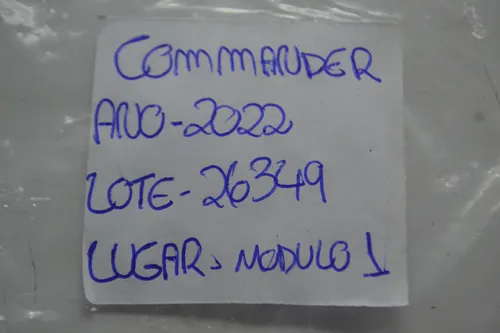 COMMANDER
ANO-2022
LOTE-26349
LUGAR> MODULO 1